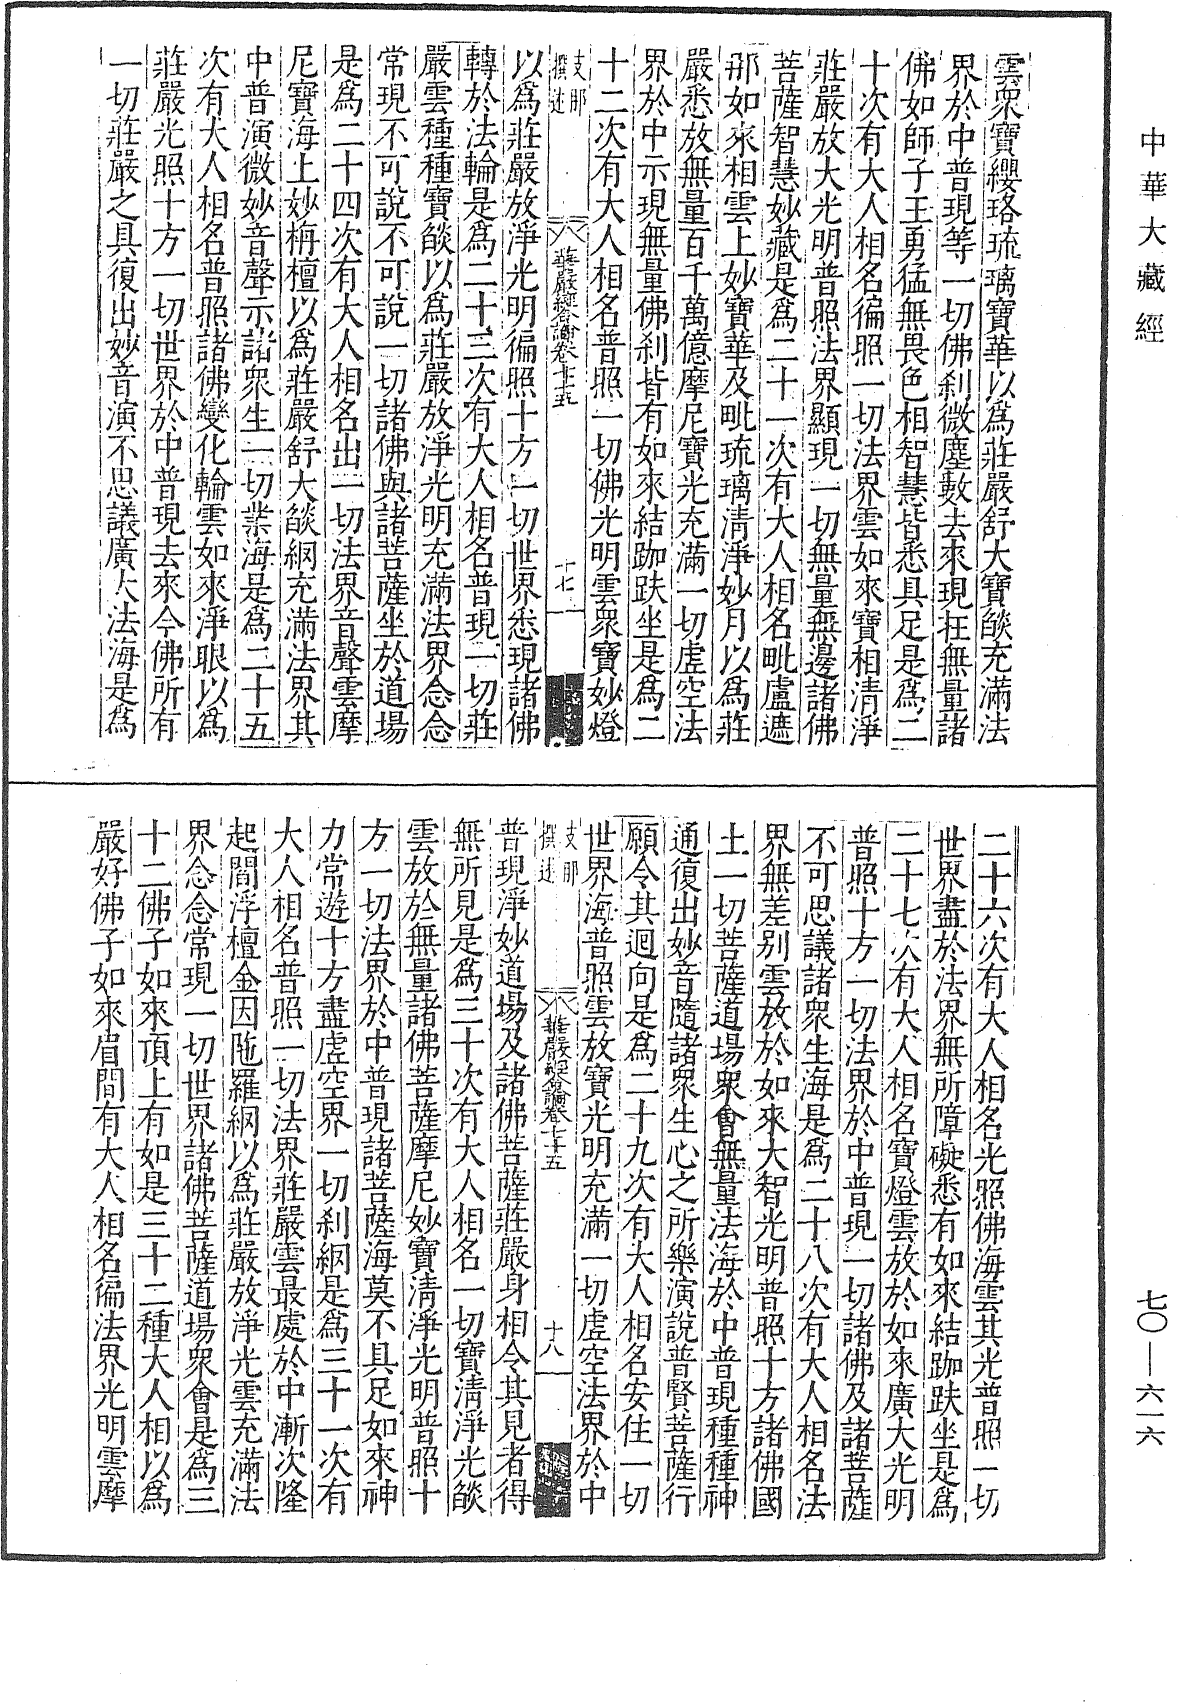 中華大藏經
雲衆寶纓珞琉璃寶華以爲莊嚴舒大寶燄充滿法
界於中普現等一切佛刹微塵數去來現在無量諸
佛如師子王勇猛無畏色相智慧皆悉具足是爲二
十次有大人相名徧照一切法界雲如來寶相清淨
莊嚴放大光明普照法界顯現一切無量無邊諸佛
菩薩智慧妙藏是爲二十一次有大人相名毗盧遮
那如來相雲上妙寶華及毗琉璃清淨妙月以爲莊
嚴悉放無量百千萬億摩尼寶光充滿一切虛空法
界於中示現無量佛刹皆有如來結跏趺坐是爲二
十二次有大人相名普照一切佛光明雲衆寶妙燈
支那撰述
華嚴經合論卷七十五
十七
以爲莊嚴放淨光明徧照十方一切世界悉現諸佛
轉於法輪是爲二十三次有大人相名普現一切莊
嚴雲種種寶燄以爲莊嚴放淨光明充滿法界念念
常現不可說不可說一切諸佛與諸菩薩坐於道場
是爲二十四次有大人相名出一切法界音聲雲摩
尼寶海上妙栴檀以爲莊嚴舒大燄網充滿法界其
中普演微妙音聲示諸衆生一切業海是爲二十五
次有大人相名普照諸佛變化輪雲如來淨眼以爲
莊嚴光照十方一切世界於中普現去來今佛所有
一切莊嚴之具復出妙音演不思議廣大法海是爲
二十六次有大人相名光照佛海雲其光普照一切
世界盡於法界無所障礙悉有如來結跏趺坐是爲
二十七次有大人相名寶燈雲放於如來廣大光明
普照十方一切法界於中普現一切諸佛及諸菩薩
不可思議諸衆生海是爲二十八次有大人相名法
界無差别雲放於如來大智光明普照十方諸佛國
土一切菩薩道場衆會無量法海於中普現種種神
通復出妙音隨諸衆生心之所樂演說普賢菩薩行
願令其迴向是爲二十九次有大人相名安住一切
世界海普照雲放寶光明充滿一切虛空法界於中
支那撰述
華嚴經合論卷七十五
十八
普現淨妙道場及諸佛菩薩莊嚴身相令其見者得
無所見是爲三十次有大人相名一切寶清淨光燄
雲放於無量諸佛菩薩摩尼妙寶清淨光明普照十
方一切法界於中普現諸菩薩海莫不具足如來神
力常遊十方盡虛空界一切刹網是爲三十一次有
大人相名普照一切法界莊嚴雲最處於中漸次隆
起閻浮檀金因陁羅網以爲莊嚴放淨光雲充滿法
界念念常現一切世界諸佛菩薩道場衆會是爲三
十二佛子如來頂上有如是三十二種大人相以爲
嚴好佛子如來眉間有大人相名徧法界光明雲摩
七〇—六一六